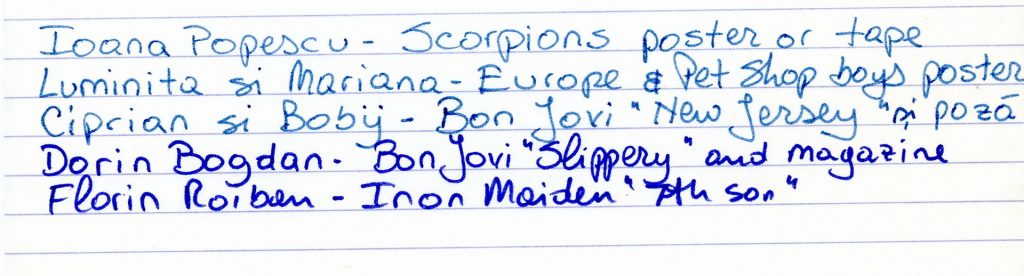 Ioana Popescu - Scorpions poster or tape
Luminita si Mariana - Europe & Pet Shop boys poster
Ciprian si Boby - Bon Jovi "New Jersey" și poză
Dorin Bogdan - Bon Jovi "Slippery" and magazine
Florin Roiban - Iron Maiden "7th son"